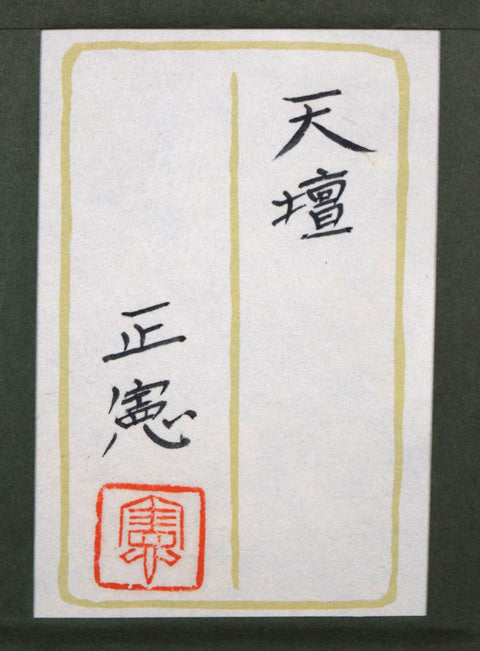 天壇
正憲
憲